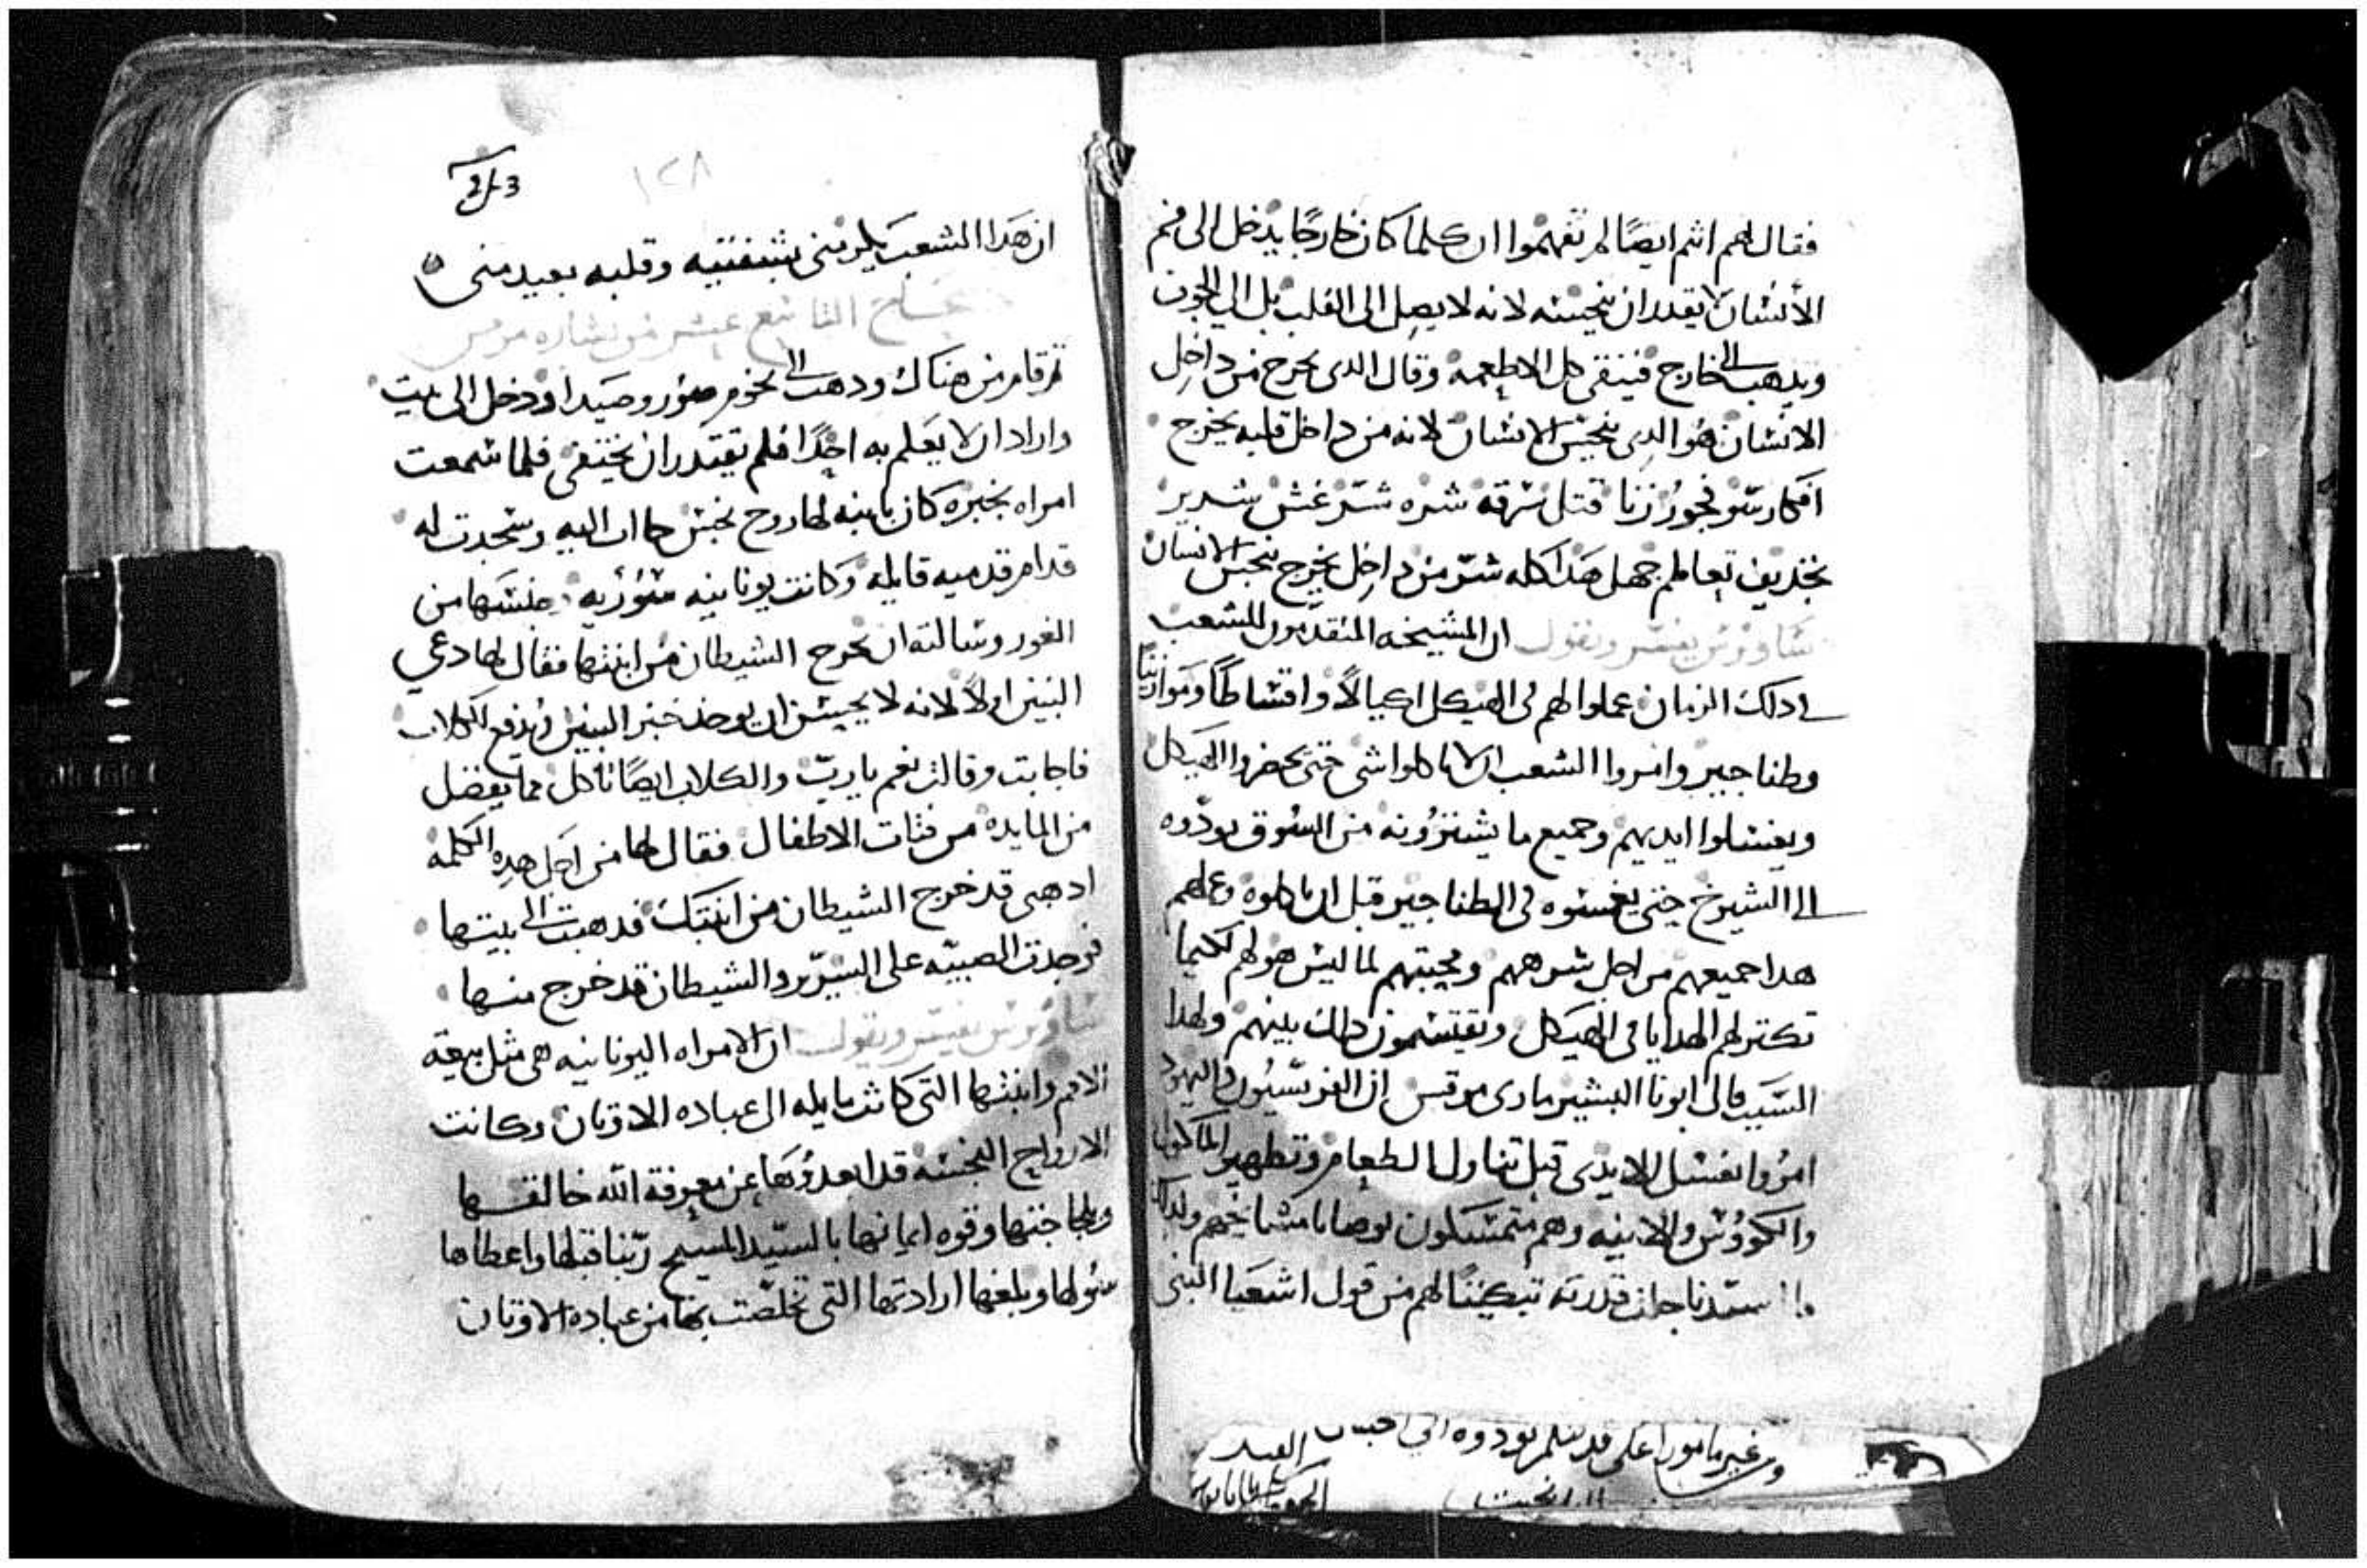 فقال لهم انتم ايضًا لم تفهموا ان كلما كان خارجًا يدخل الى فم
الأنسان لا يقدر ان ينجسه لانه لا يصل الى القلب بل الي الجوف
ويدهب الي خارج فينقى كل الاطعمه وقال الدى يخرج من داخل
الانسان هو الدى ينجس الانسان لانه من داخل قلبه يخرج
افكار سو فجور زنا قتل سرقه شره شر غش شرير
تجديف تعاظم جهل هدا كله شر من داخل يخرج ينجس الانسان
ساويرس يفسر ويقول ان المشيخه المتقدمون للشعب
في دلك الزمان عملوا لهم فى الهيكل اكيالاً واقساطًا وموازينًا
وطناجير وامروا الشعب ان لا ياكلوا شى حتى يحضروا الهيكل
ويغسلوا ايديهم وجميع ما يشترونه من السوق يودّوه
الي الشيوخ حتى يغمسوه فى الطناجير قبل ان ياكلوه وعلهم
هدا جميعهم من اجل شرههم ومحبتهم لما ليس هو لهم لكيما
تكتر لهم الهدايا فى الهيكل ويقتسمون دلك بينهم ولهدا
السبب قال ابونا البشير مارى مرقس ان الفريسيون واليهود
امروا بغسل الايدى قبل تناول الطعام وتطهير الماكول
والكووس والانيه وهم متمسكون بوصايا مشايخهم ولدلك
سيدنا جلت قدرته تبكيتًا لهم من قول اشعيا النبى
وغير مامور اعلى قدسكم تودوه الي
ان هدا الشعب يكرمنى بشفتيه وقلبه بعيد منى
التاسع عشر من بشاره مرقس
ثم قام من هناك ودهب الى تخوم صور وصيدا ودخل الى بيت
واراد ان لا يعلم به احدًا فلم يقتدر ان يختفى فلما سمعت
امراه بخبره كان بابنه لها روح نجس جاات اليه وسجدت له
قدام قدميه قايله وكانت يونانيه سوريه جنسها من
الغور وسالته ان يخرج الشيطان من ابنتها فقال لها دعي
البنين اولاً لانه لا يحسن ان يوخد خبز البنين ويدفع للكلاب
فاجابت وقالت نعم يا ربّ والكلاب ايضًا تاكل مما يفضل
من المايده من فتات الاطفال فقال لها من اجل هده الكلمه
ادهبى قد خرج الشيطان من ابنتك فدهبت الي بيتها
فوجدت الصبيّه على السرير والشيطان قد خرج منها
ساويرس يفسر ويقول ان الامراه اليونانيه هى مثل بيعة
الامم وابنتها التى كانت مايله الى عباده الاوتان وكانت
الارواح النجسه قد ابعدوها عن معرفة الله خالقها
وبلجاجتها وقوه ايمانها بالسيّد المسيح ربّنا قبلها واعطاها
سولها وبلغها ارادتها التى تخلّصت بها من عباده الاوتان